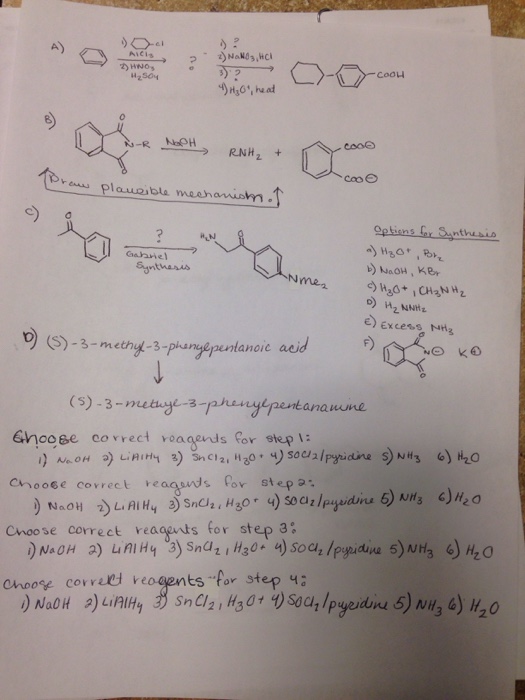 A) 1) -Cl AlCl3 2) HNO3 H2SO4 ? 1) ? 2) NaNO2, HCl 3) ? 4) H3O+, heat -COOH
B) O N-R O NaOH RNH2 + COO⊖ COO⊖
Draw plausible mechanism.
C) O ? Gabriel Synthesis H2N O NMe2
Options for Synthesis
a) H3O+, Br2
b) NaOH, KBr
c) H3O+, CH3NH2
D) H2NNH2
E) Excess NH3
F) O N⊖ O K⊕
D) (S)-3-methyl-3-phenylpentanoic acid
(S)-3-methyl-3-phenylpentanamine
Choose correct reagents for step 1:
1) NaOH 2) LiAlH4 3) SnCl2, H3O+ 4) SOCl2/pyridine 5) NH3 6) H2O
Choose correct reagents for step 2:
1) NaOH 2) LiAlH4 3) SnCl2, H3O+ 4) SOCl2/pyridine 5) NH3 6) H2O
Choose correct reagents for step 3:
1) NaOH 2) LiAlH4 3) SnCl2, H3O+ 4) SOCl2/pyridine 5) NH3 6) H2O
Choose correct reagents for step 4:
1) NaOH 2) LiAlH4 3) SnCl2, H3O+ 4) SOCl2/pyridine 5) NH3 6) H2O